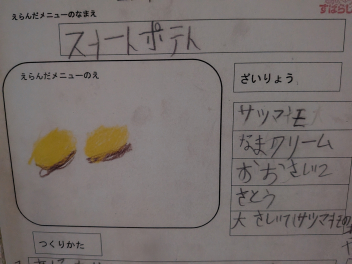 えらんだメニューのなまえ
スイートポテト
えらんだメニューのえ
ざいりょう
サツマイモ
なまクリーム
おおさじ2
さとう
大さじ1(サツマイモの
つくりかた